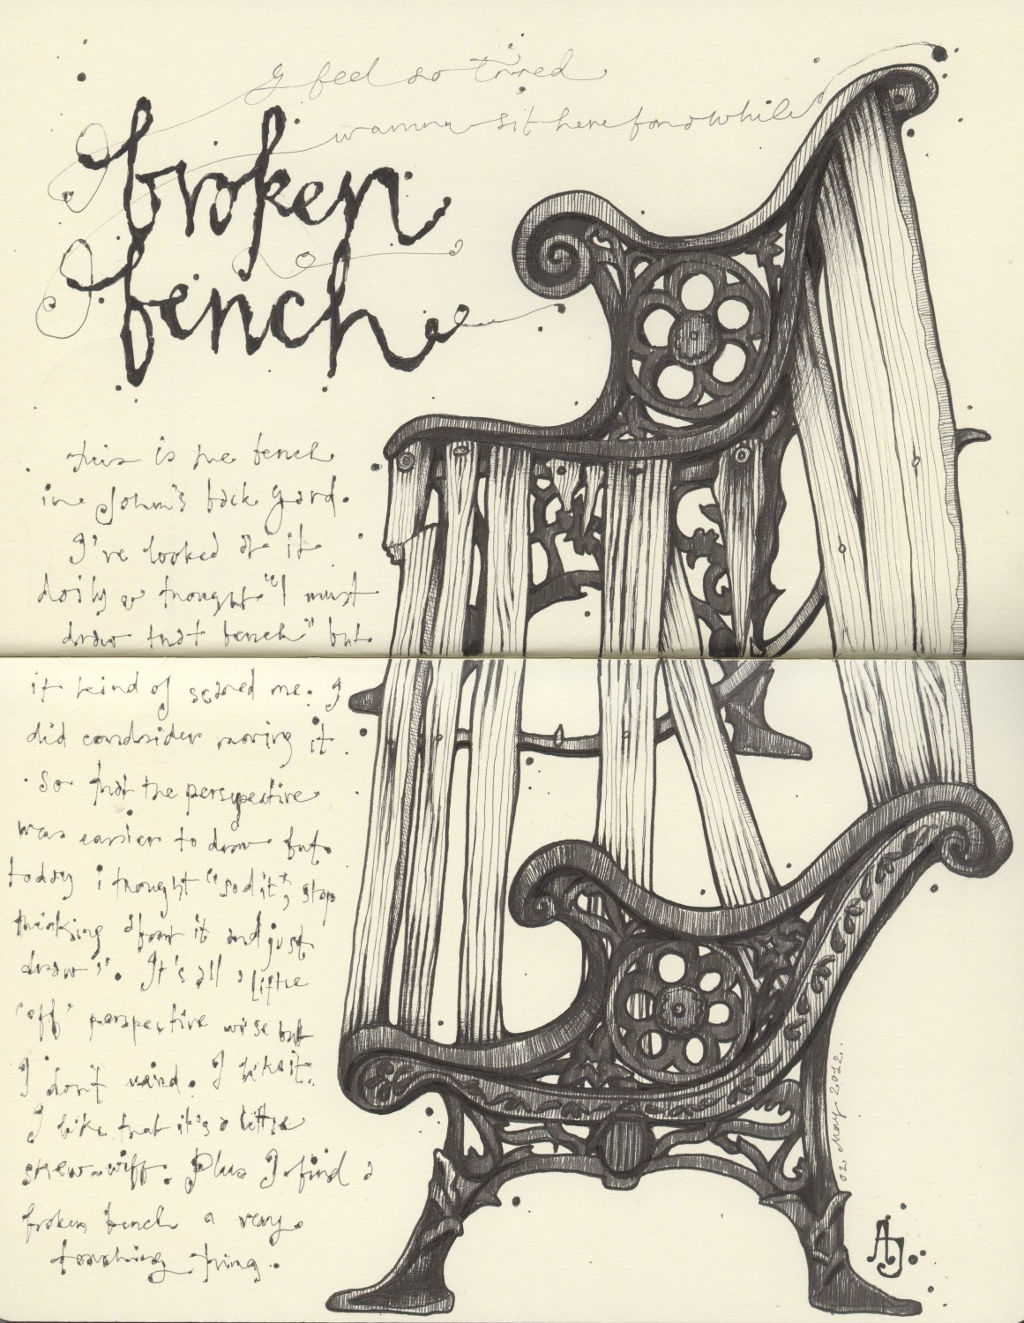 I feel so tired
wanna sit here for a while
broken
bench
this is the bench
in John's back yard.
I've looked at it
daily & thought "I must
draw that bench" but
it kind of scared me. I
did condsider moving it
so that the perspective
was easier to draw but
today i thought "sod it", stop
thinking about it and just
draw". It's all a little
'off' perspective wise but
I don't mind. I like it.
I like that it's a little
skew-wiff. Plus I find a
broken bench a very
touching thing.
02 May 2012.
AJ